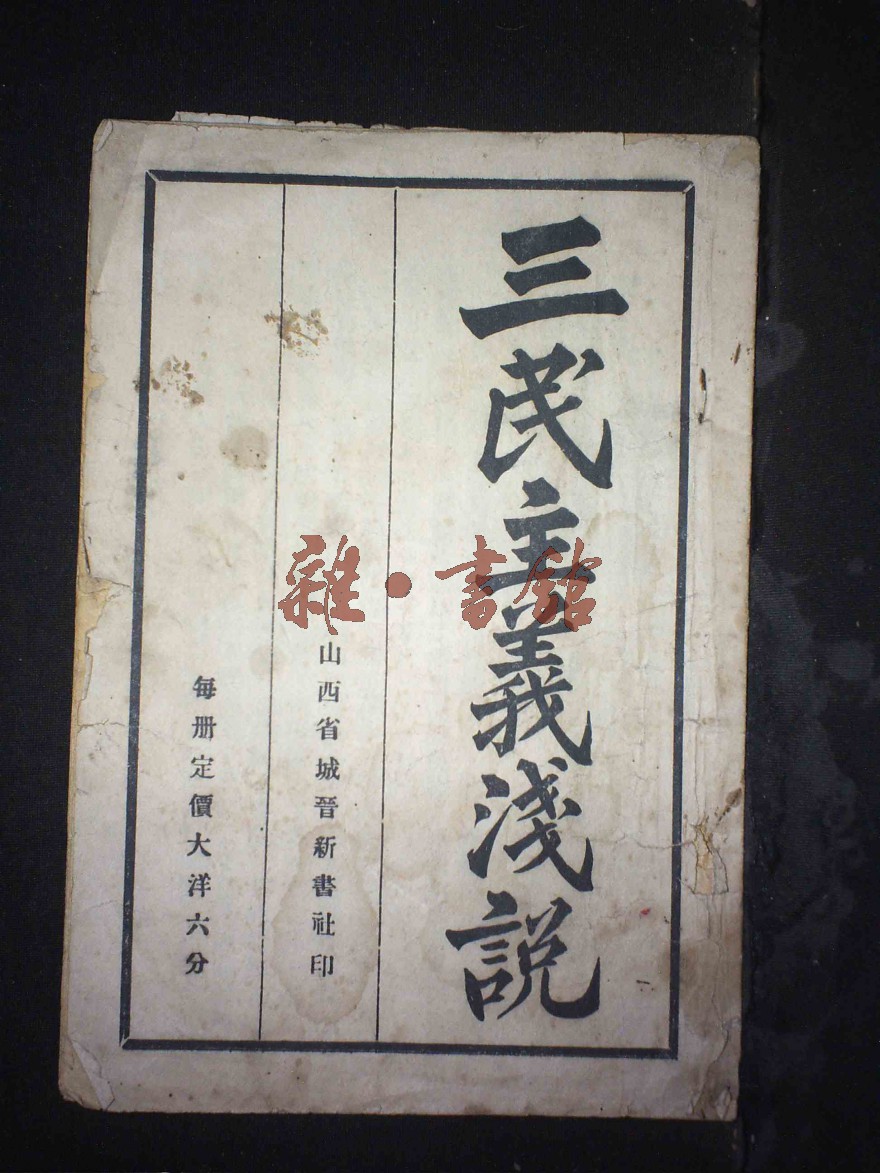 三民主義淺説
山西省城晉新書社印
每册定價大洋六分
雜·書館